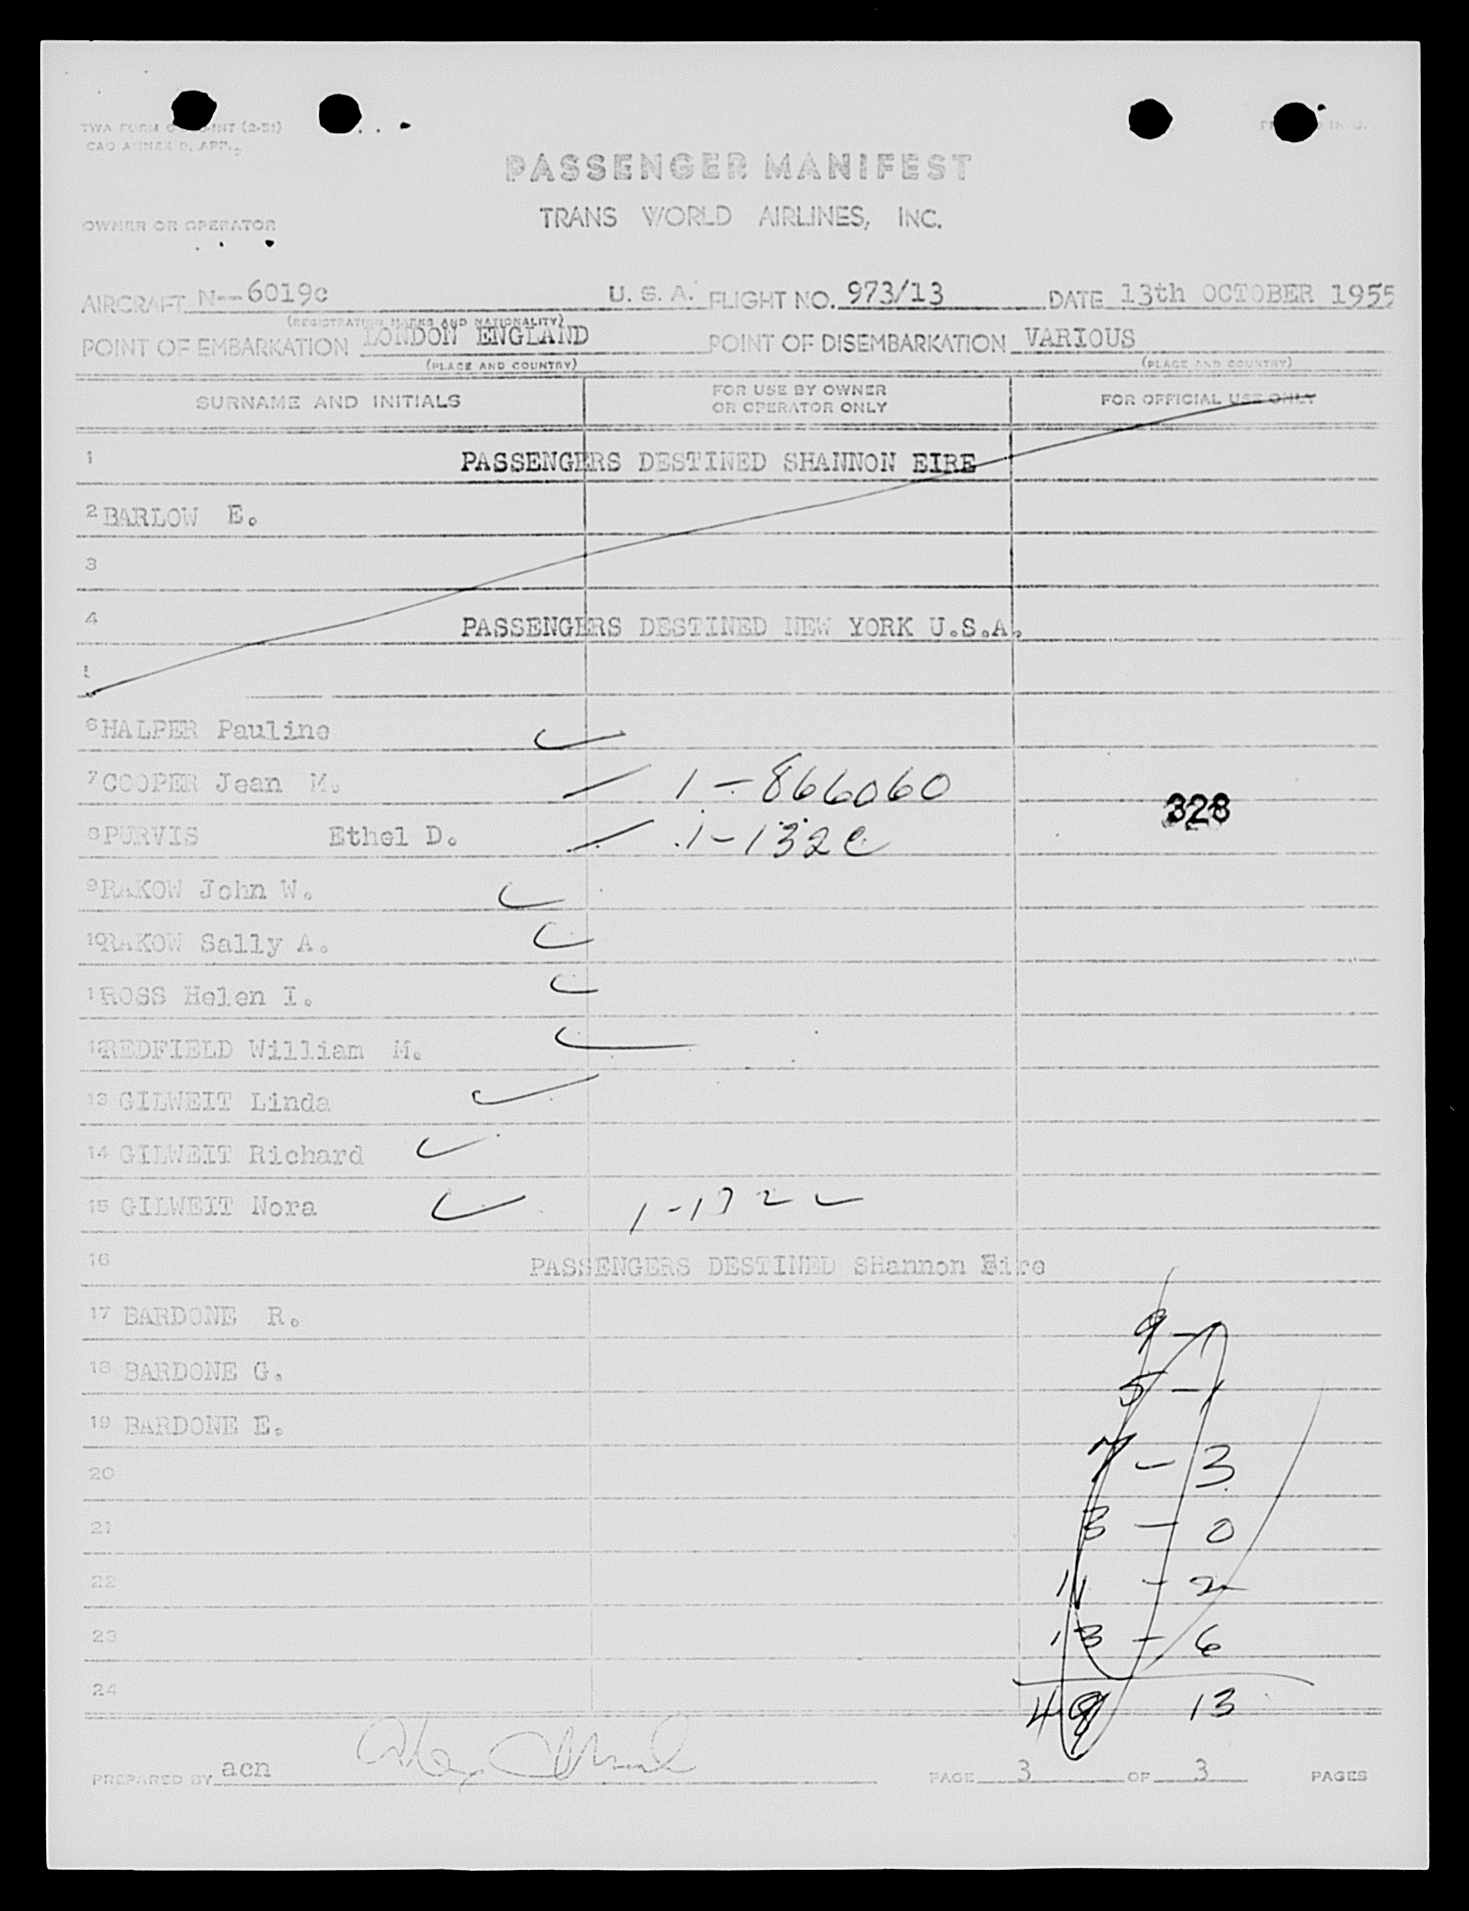 TWA FORM
CAO ANNEX 9, APP.
PASSENGER MANIFEST
OWNER OR OPERATOR TRANS WORLD AIRLINES, INC.
AIRCRAFT N--6019c U. S. A. FLIGHT NO. 973/13 DATE 13th OCTOBER 1955
(REGISTRATION MARKS AND NATIONALITY)
POINT OF EMBARKATION LONDON ENGLAND POINT OF DISEMBARKATION VARIOUS
(PLACE AND COUNTRY) (PLACE AND COUNTRY)
SURNAME AND INITIALS FOR USE BY OWNER OR OPERATOR ONLY FOR OFFICIAL USE ONLY
1 PASSENGERS DESTINED SHANNON EIRE
2 BARLOW E.
3
4 PASSENGERS DESTINED NEW YORK U.S.A.
5
6 HALPER Pauline
7 COOPER Jean M. 1-866060
328
8 PURVIS Ethel D. 1-132c
9 RAKOW John W.
10 RAKOW Sally A.
11 ROSS Helen I.
12 REDFIELD William M.
13 GILWEIT Linda
14 GILWEIT Richard
15 GILWEIT Nora 1-132
16 PASSENGERS DESTINED SHannon Eire
17 BARDONE R.
9-1
18 BARDONE G.
5-1
19 BARDONE E.
20 7-3
21 3-0
22 11-2
23 13-6
24 48 13
PREPARED BY acn PAGE 3 OF 3 PAGES